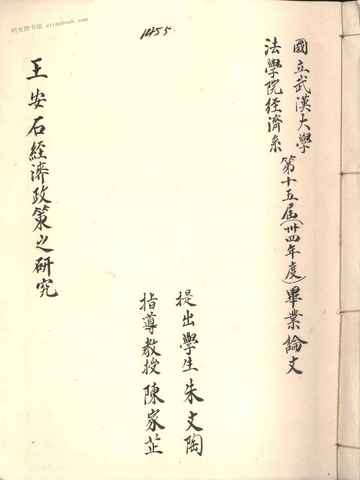 國立武漢大學 第十五屆(卅四年度)畢業論文
法學院經濟系
王安石經濟政策之研究
提出學生朱文陶
指導教授陳家芷